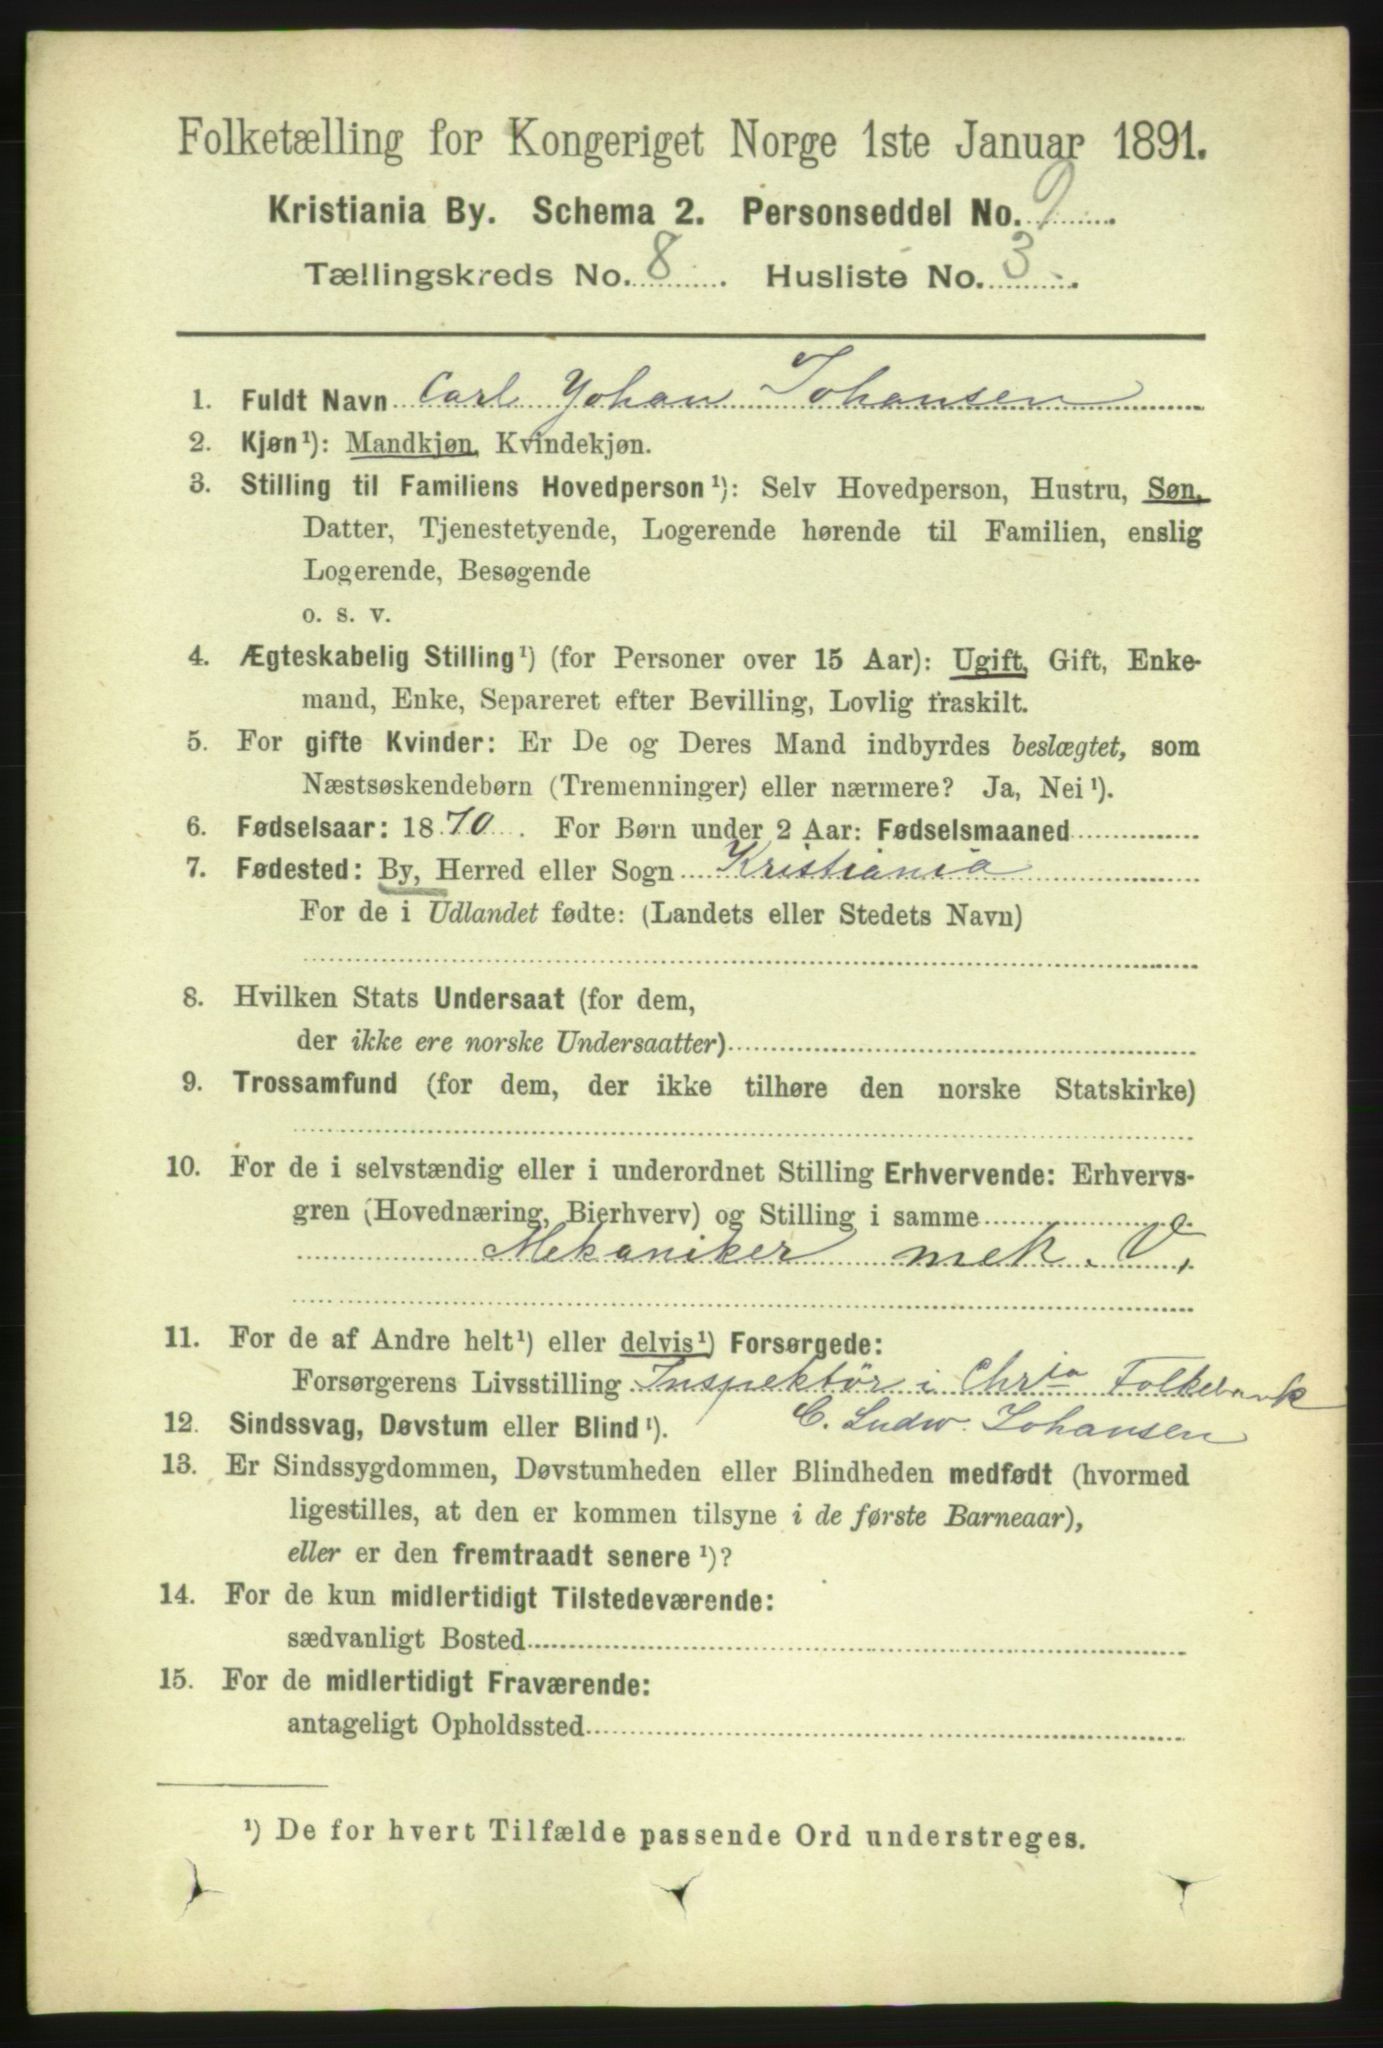 Folketælling for Kongeriget Norge 1ste Januar 1891.
Kristiania By. Schema 2. Personseddel No. 9
Tællingskreds No. 8. Husliste No. 3.
1. Fuldt Navn Carl Johan Johansen
2. Kjøn¹): Mandkjøn, Kvindekjøn.
3. Stilling til Familiens Hovedperson¹): Selv Hovedperson, Hustru, Søn,
Datter, Tjenestetyende, Logerende hørende til Familien, enslig
Logerende, Besøgende
o. s. v.
4. Ægteskabelig Stilling¹) (for Personer over 15 Aar): Ugift, Gift, Enke-
mand, Enke, Separeret efter Bevilling, Lovlig fraskilt.
5. For gifte Kvinder: Er De og Deres Mand indbyrdes beslægtet, som
Næstsøskendebørn (Tremenninger) eller nærmere? Ja, Nei¹).
6. Fødselsaar: 1870. For Børn under 2 Aar: Fødselsmaaned
7. Fødested: By, Herred eller Sogn Kristiania
For de i Udlandet fødte: (Landets eller Stedets Navn)
8. Hvilken Stats Undersaat (for dem,
der ikke ere norske Undersaatter)
9. Trossamfund (for dem, der ikke tilhøre den norske Statskirke)
10. For de i selvstændig eller i underordnet Stilling Erhvervende: Erhvervs-
gren (Hovednæring, Bierhverv) og Stilling i samme
Mekaniker mek. V.
11. For de af Andre helt¹) eller delvis¹) Forsørgede:
Forsørgerens Livsstilling Inspektör i Chria Folkebank
12. Sindssvag, Døvstum eller Blind¹). C. Ludw. Johansen
13. Er Sindssygdommen, Døvstumheden eller Blindheden medfødt (hvormed
ligestilles, at den er kommen tilsyne i de første Barneaar),
eller er den fremtraadt senere¹)?
14. For de kun midlertidigt Tilstedeværende:
sædvanligt Bosted
15. For de midlertidigt Fraværende:
antageligt Opholdssted
¹) De for hvert Tilfælde passende Ord understreges.